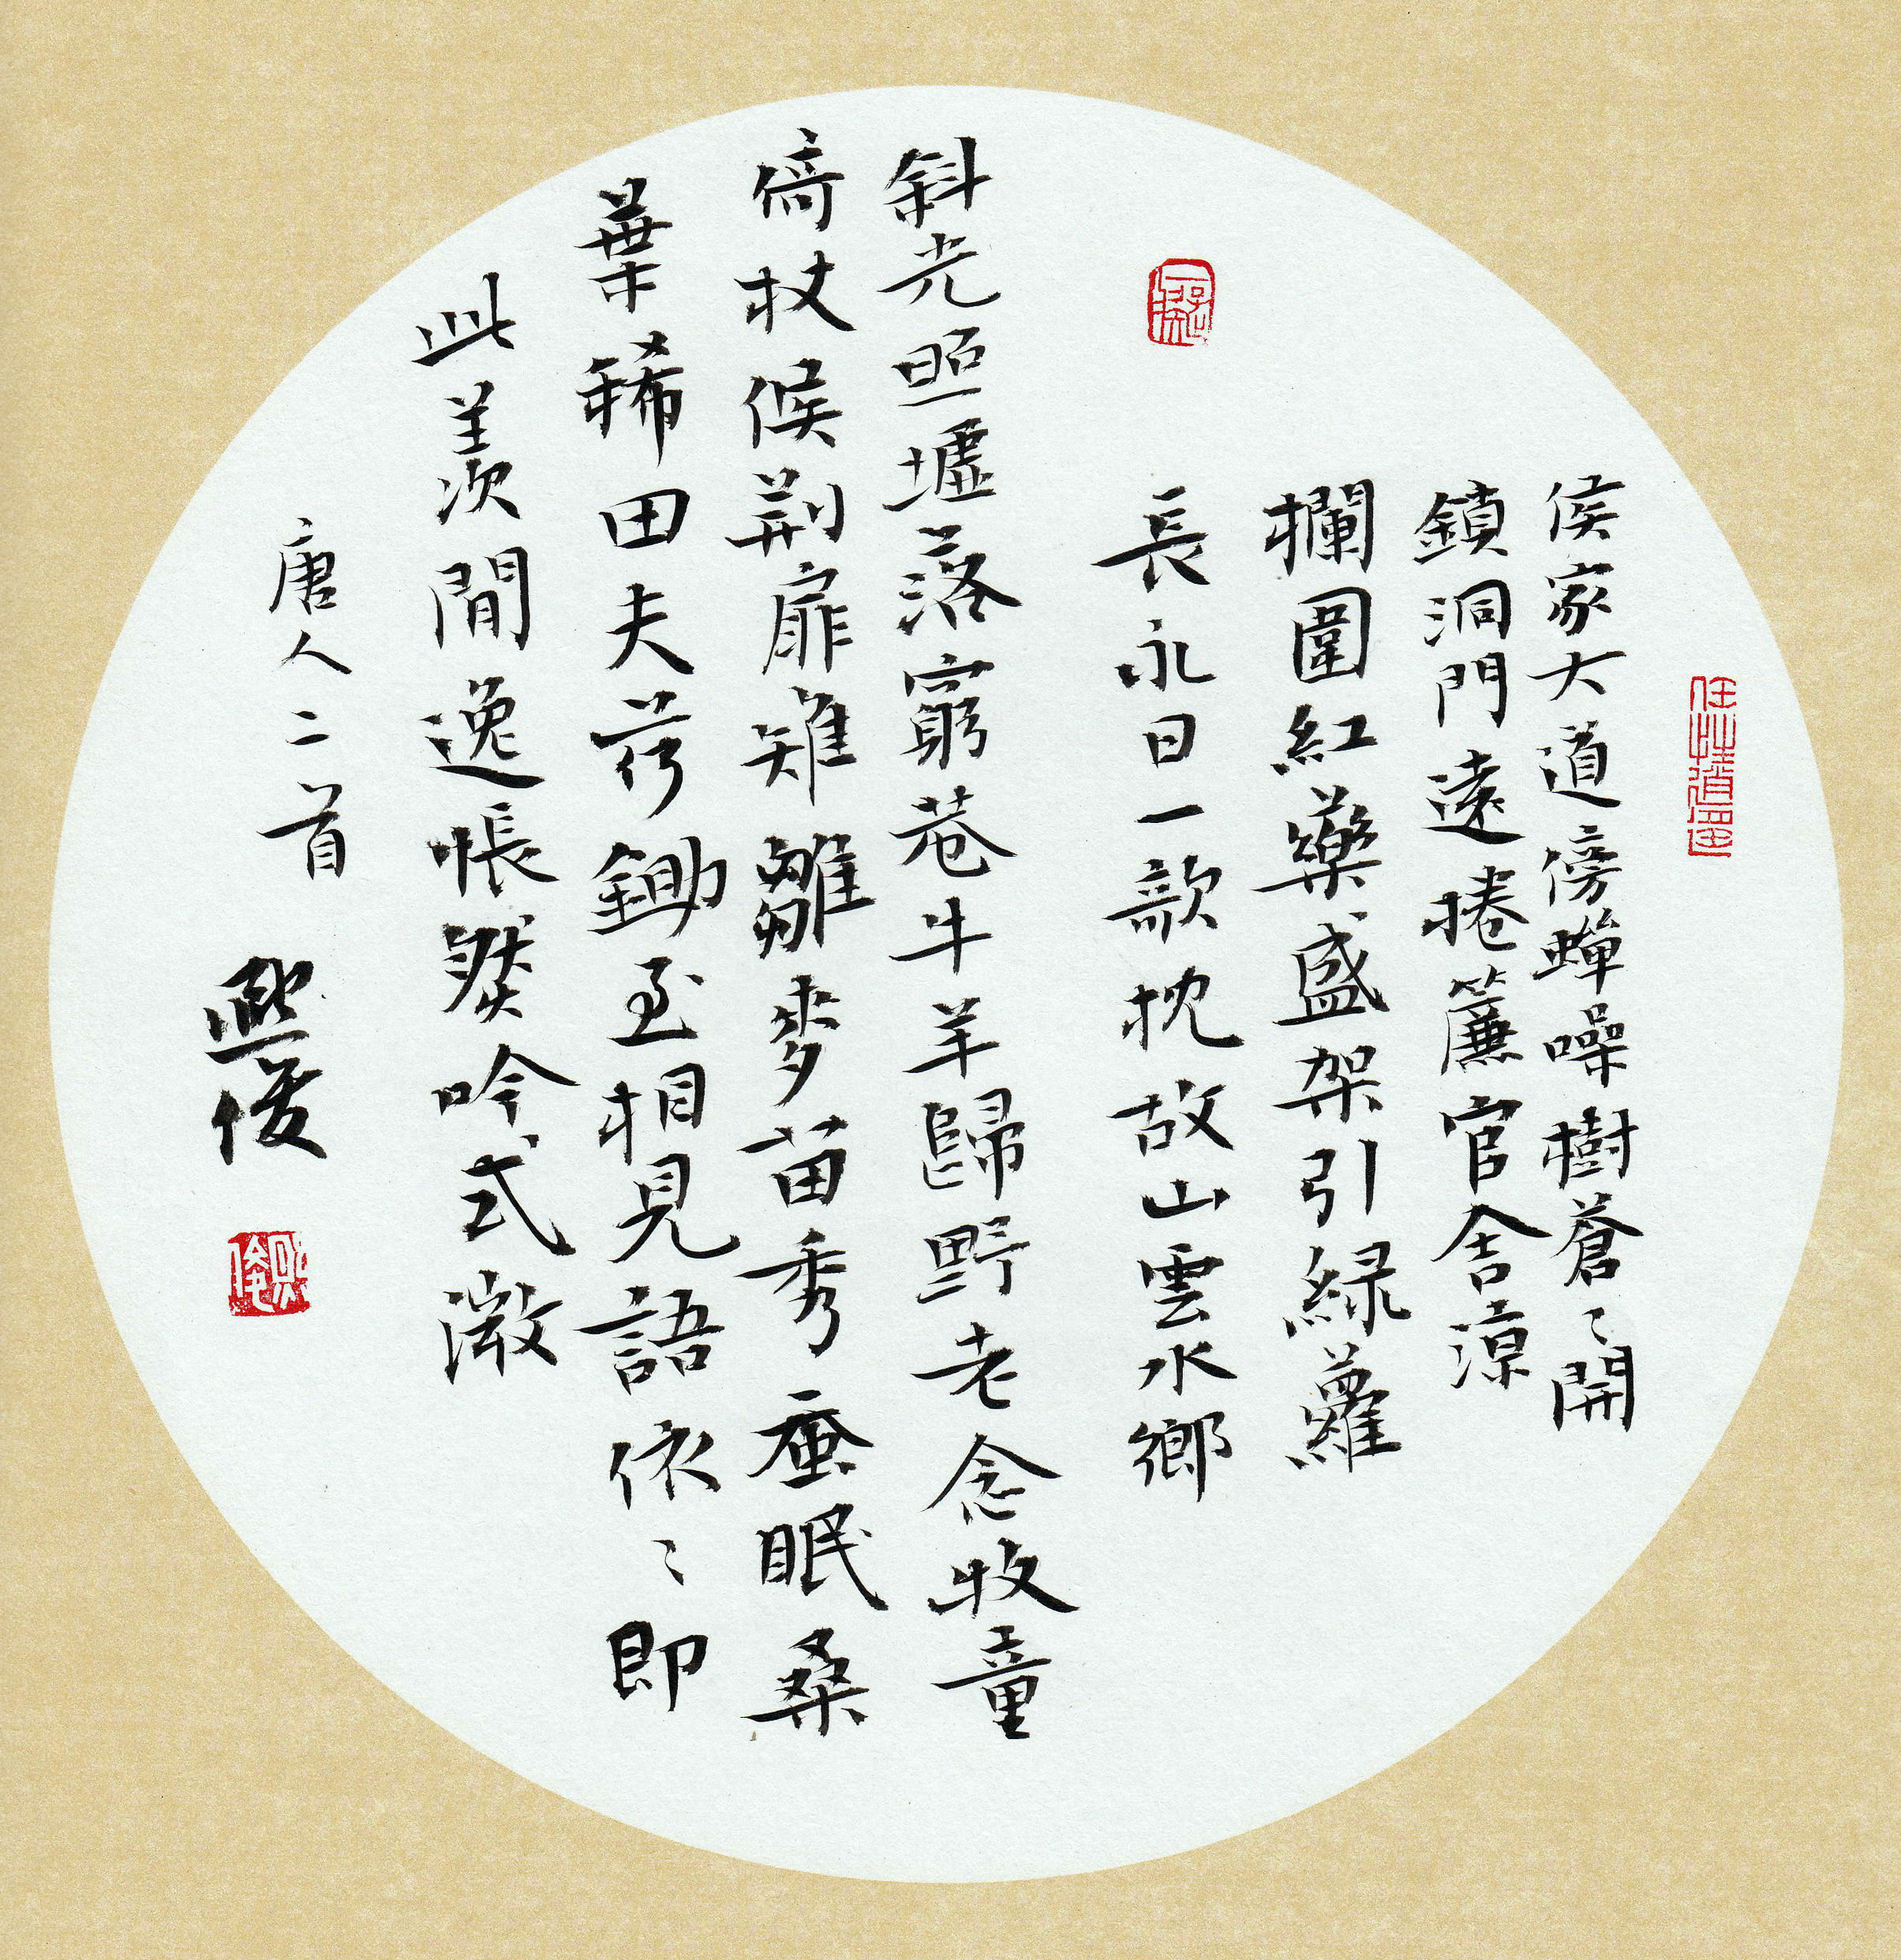 侯家大道傍蟬噪樹蒼〻開
鎖洞門遠捲簾官舍涼
欄圍紅藥盛架引綠蘿
長永日一欹枕故山雲水鄉
斜光照墟落窮巷牛羊歸野老念牧童
倚杖候荆扉雉雊麥苗秀蚕眠桑
葉稀田夫荷鋤至相見語依〻即
此羨閒逸悵然吟式微
唐人二首
熙俊